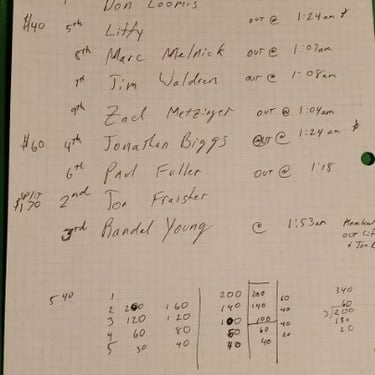 Don Loomis
$40 5th Liffy OUT @ 1:24am $
8th Marc Melnick OUT @ 1:07am
7st Jim Waldren OUT @ 1:08am
9th Zach Metzinger OUT @ 1:04am
$60 4th Jonathan Biggs OUT @ 1:24am $
6th Paul Fuller OUT @ 1:18
SPLIT
$170 2nd Jon Fraisher
3rd Randel Young @ 1:53am
OUT
& Jon
540 1 200 200 60 340
2 200 160 140 140 40 60
3 120 120 100 100 40 3)200
4 60 80 60 60 20 180
5 30 40 40 40 20